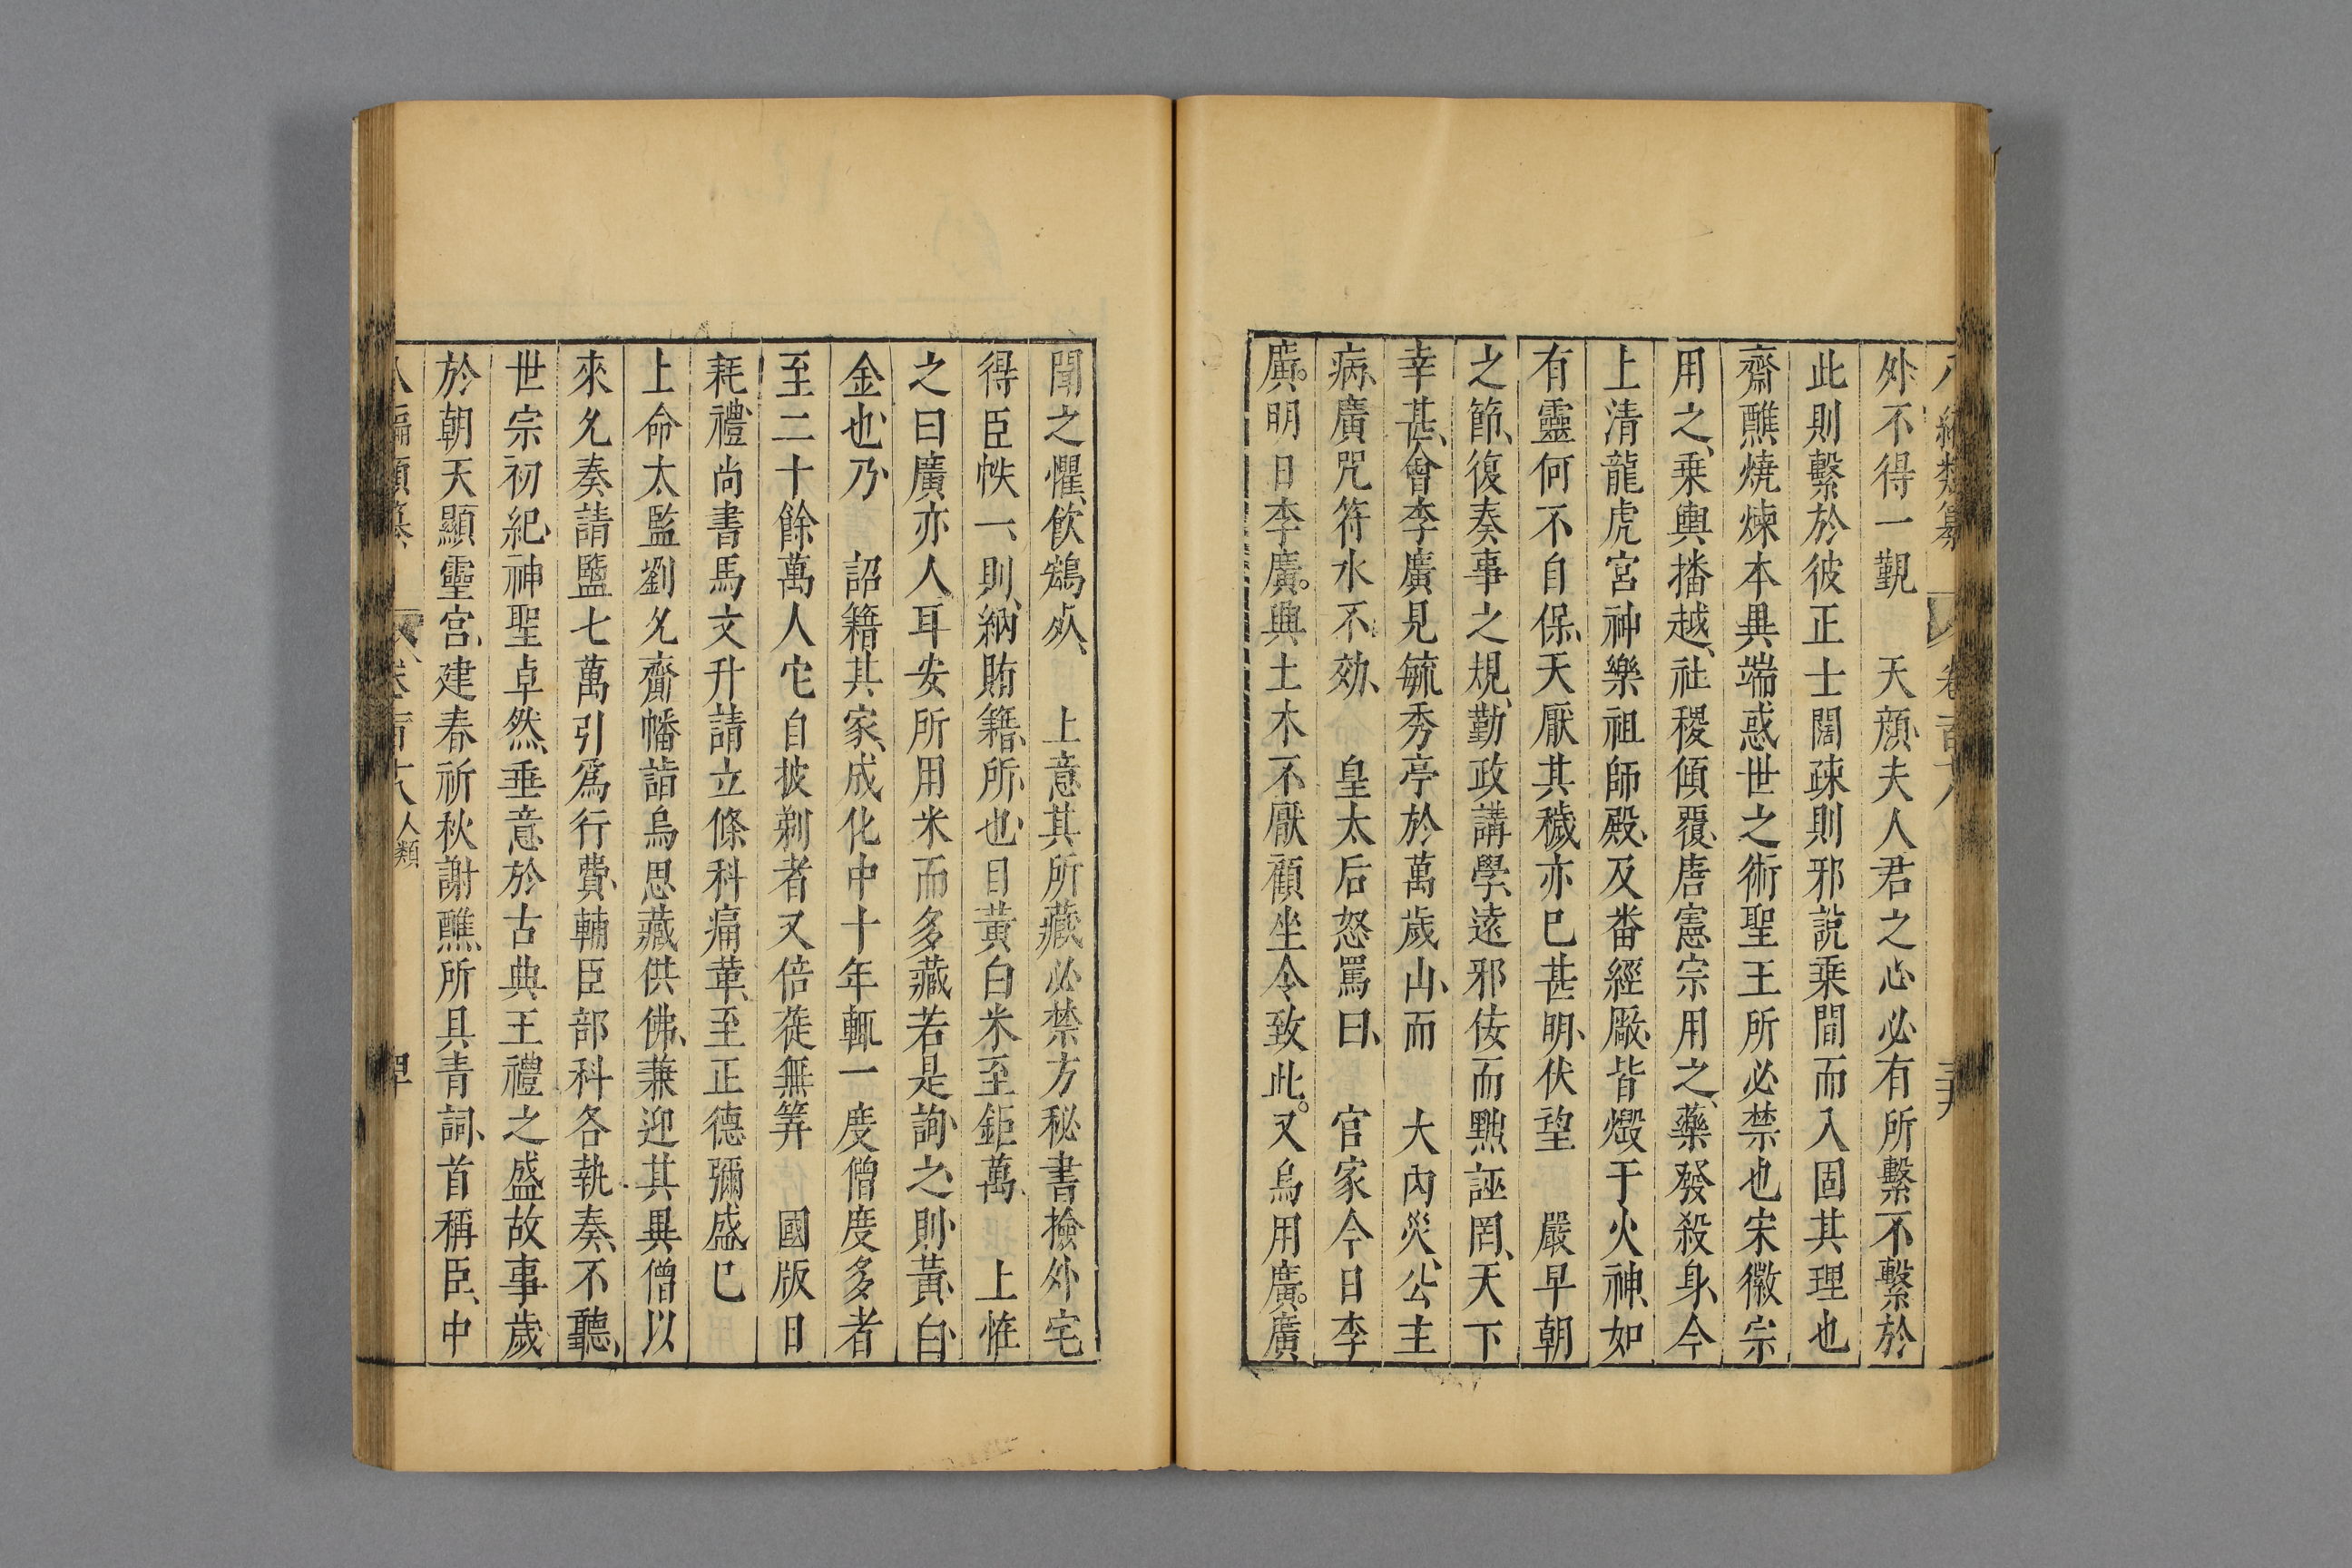 外不得一覲 天顏夫人君之心必有所繫不繫於
此則繫於彼正士闊疎則邪說乗間而入固其理也
齋醮燒煉本異端惑世之術聖王所必禁也宋徽宗
用之、乗輿播越、社稷傾覆、唐憲宗用之、藥發殺身、今
上清龍虎宮神樂祖師殿、及番經厰、皆燬于火神、如
有靈何不自保、天厭其穢、亦已甚明、伏望 嚴早朝
之節、復奏事之規、勤政講學、遠邪佞而黜誣罔、天下
幸甚、會李廣見毓秀亭於萬歲山、而 大內災、公主
病、廣咒符水不効、 皇太后怒罵曰、 官家今日李
廣。明日李廣。興土木不厭顧坐令致此。又烏用廣。廣
聞之懼、飲鴆死、 上意其所藏必禁方秘書撿外宅
得臣帙一、則納賄籍、所也目黃白米至鉅萬、 上恠
之曰廣亦人耳安所用米而多藏若是詢之、則黃、白、
金也、乃 詔籍其家、成化中十年輒一度僧度多者
至二十餘萬人它自披剃者又倍蓰無筭 國版日
耗、禮尚書馬文升請立條科痛革、至正德彌盛巳
上命太監劉允齎幡詣烏思藏供佛、兼迎其異僧以
來允奏請鹽七萬引爲行費、輔臣部科各執奏、不聽、
世宗初紀、神聖卓然、垂意於古典王禮之盛故事歲
於朝天顯靈宮、建春祈秋謝醮、所具青詞、首稱臣、中
人類